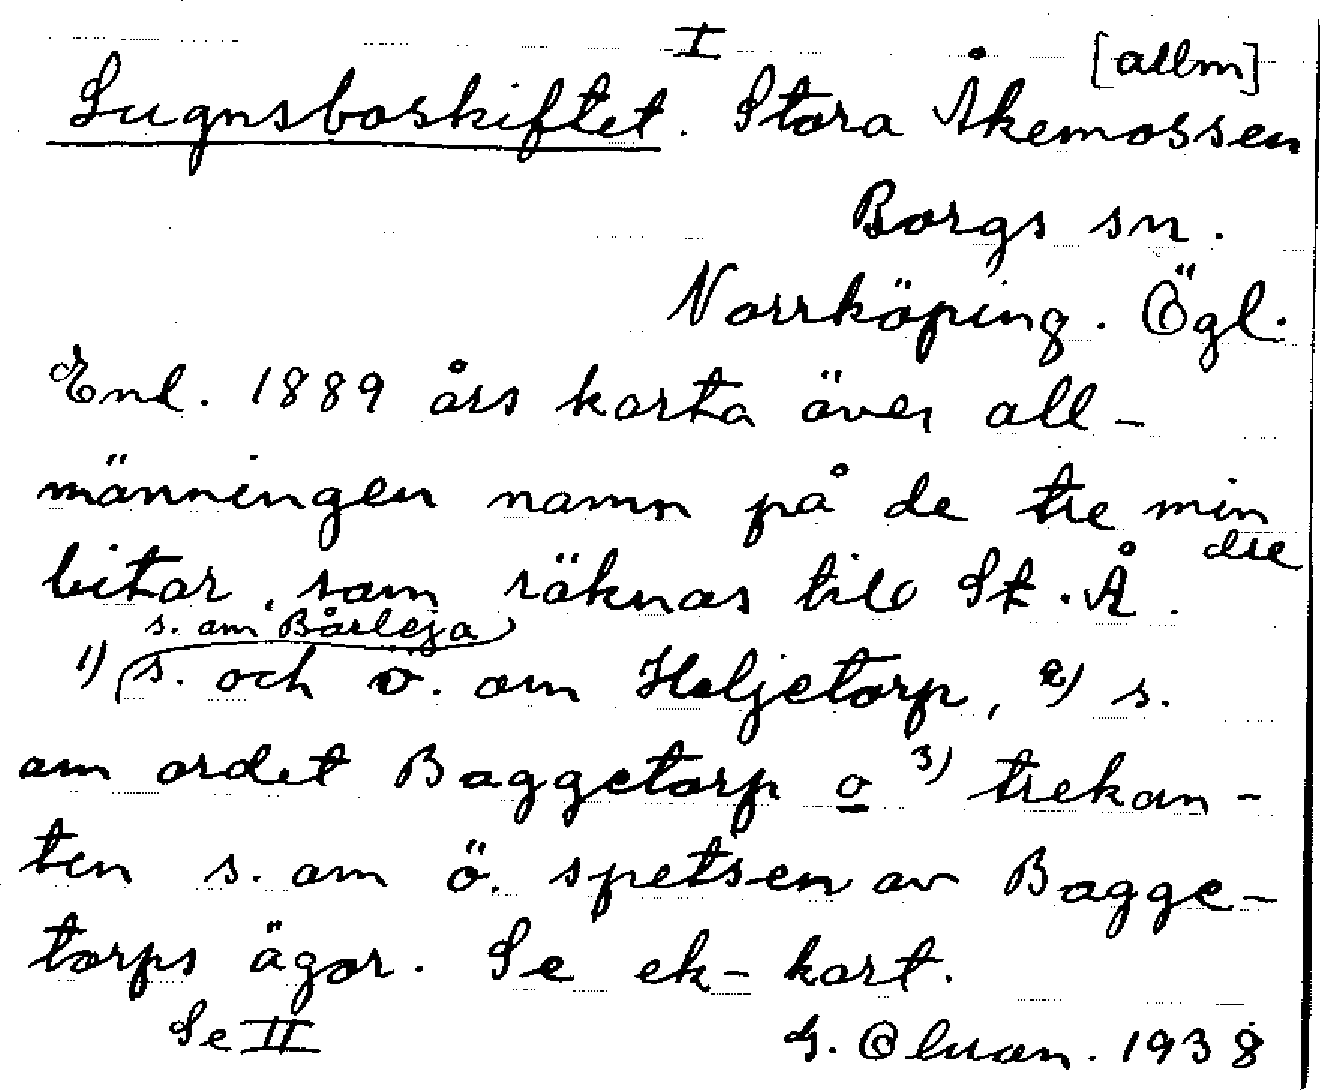 I
Lugnsboskiftet. Stora Åkemossen [allm]
Borgs sn.
Norrköping. Ögl.
Enl. 1889 års karta över all-
männingen namn på de tre min
dre
bitar, som räknas till St. Å.
s. om Bårleja
1) s. och v. om Heljetorp, 2) s.
om ordet Baggetorp o 3) trekan-
ten s. om ö. spetsen av Bagge-
torps ägor. Se ek-kart.
Se II
1938